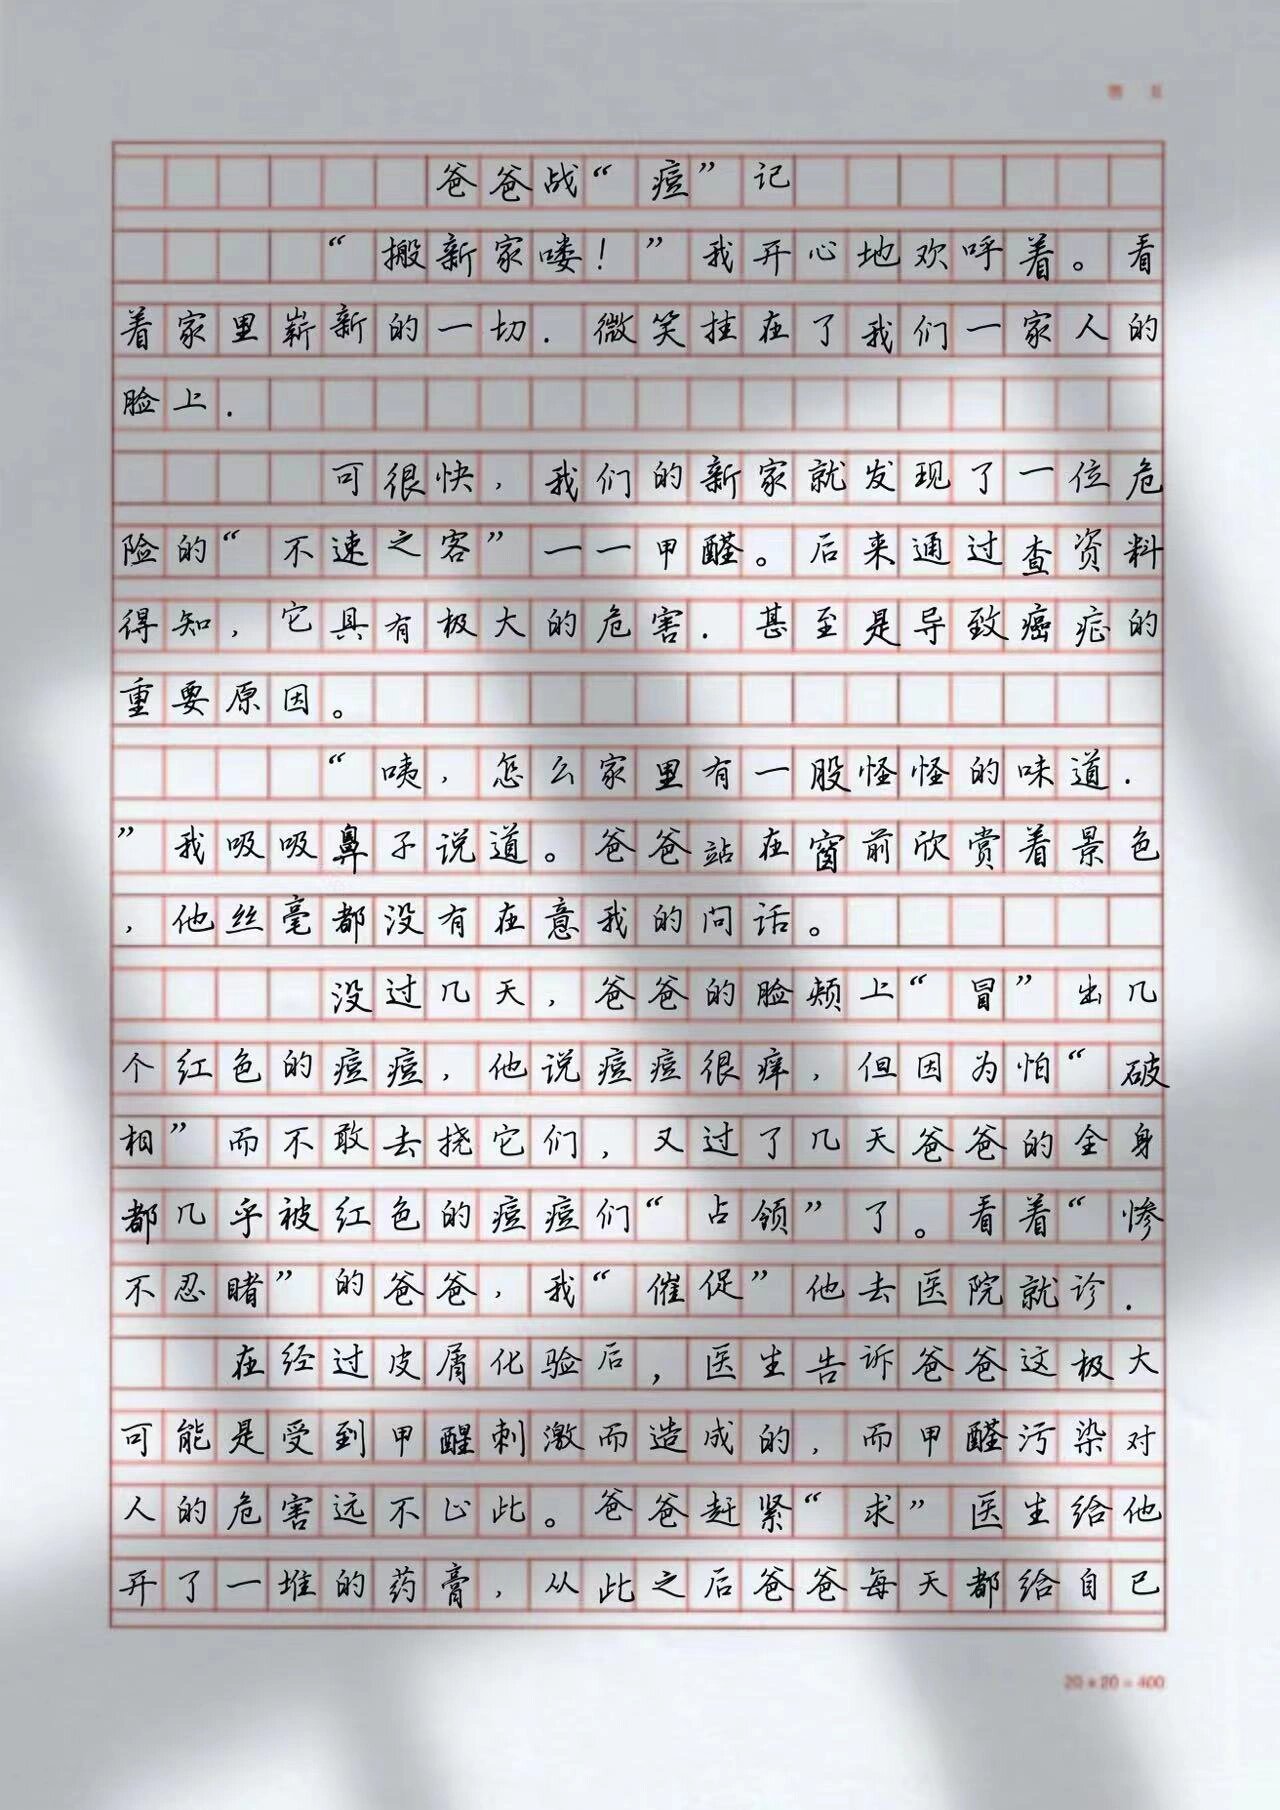 爸爸战“痘”记
“搬新家喽！”我开心地欢呼着。看
着家里崭新的一切.微笑挂在了我们一家人的
脸上.
可很快，我们的新家就发现了一位危
险的“不速之客”一一甲醛。后来通过查资料
得知，它具有极大的危害.甚至是导致癌症的
重要原因。
“咦，怎么家里有一股怪怪的味道.
”我吸吸鼻子说道。爸爸站在窗前欣赏着景色
，他丝毫都没有在意我的问话。
没过几天，爸爸的脸颊上“冒”出几
个红色的痘痘，他说痘痘很痒，但因为怕“破
相”而不敢去挠它们，又过了几天爸爸的全身
都几乎被红色的痘痘们“占领”了。看着“惨
不忍睹”的爸爸，我“催促”他去医院就诊.
在经过皮屑化验后，医生告诉爸爸这极大
可能是受到甲醒刺激而造成的，而甲醛污染对
人的危害远不止此。爸爸赶紧“求”医生给他
开了一堆的药膏，从此之后爸爸每天都给自已
20×20=400